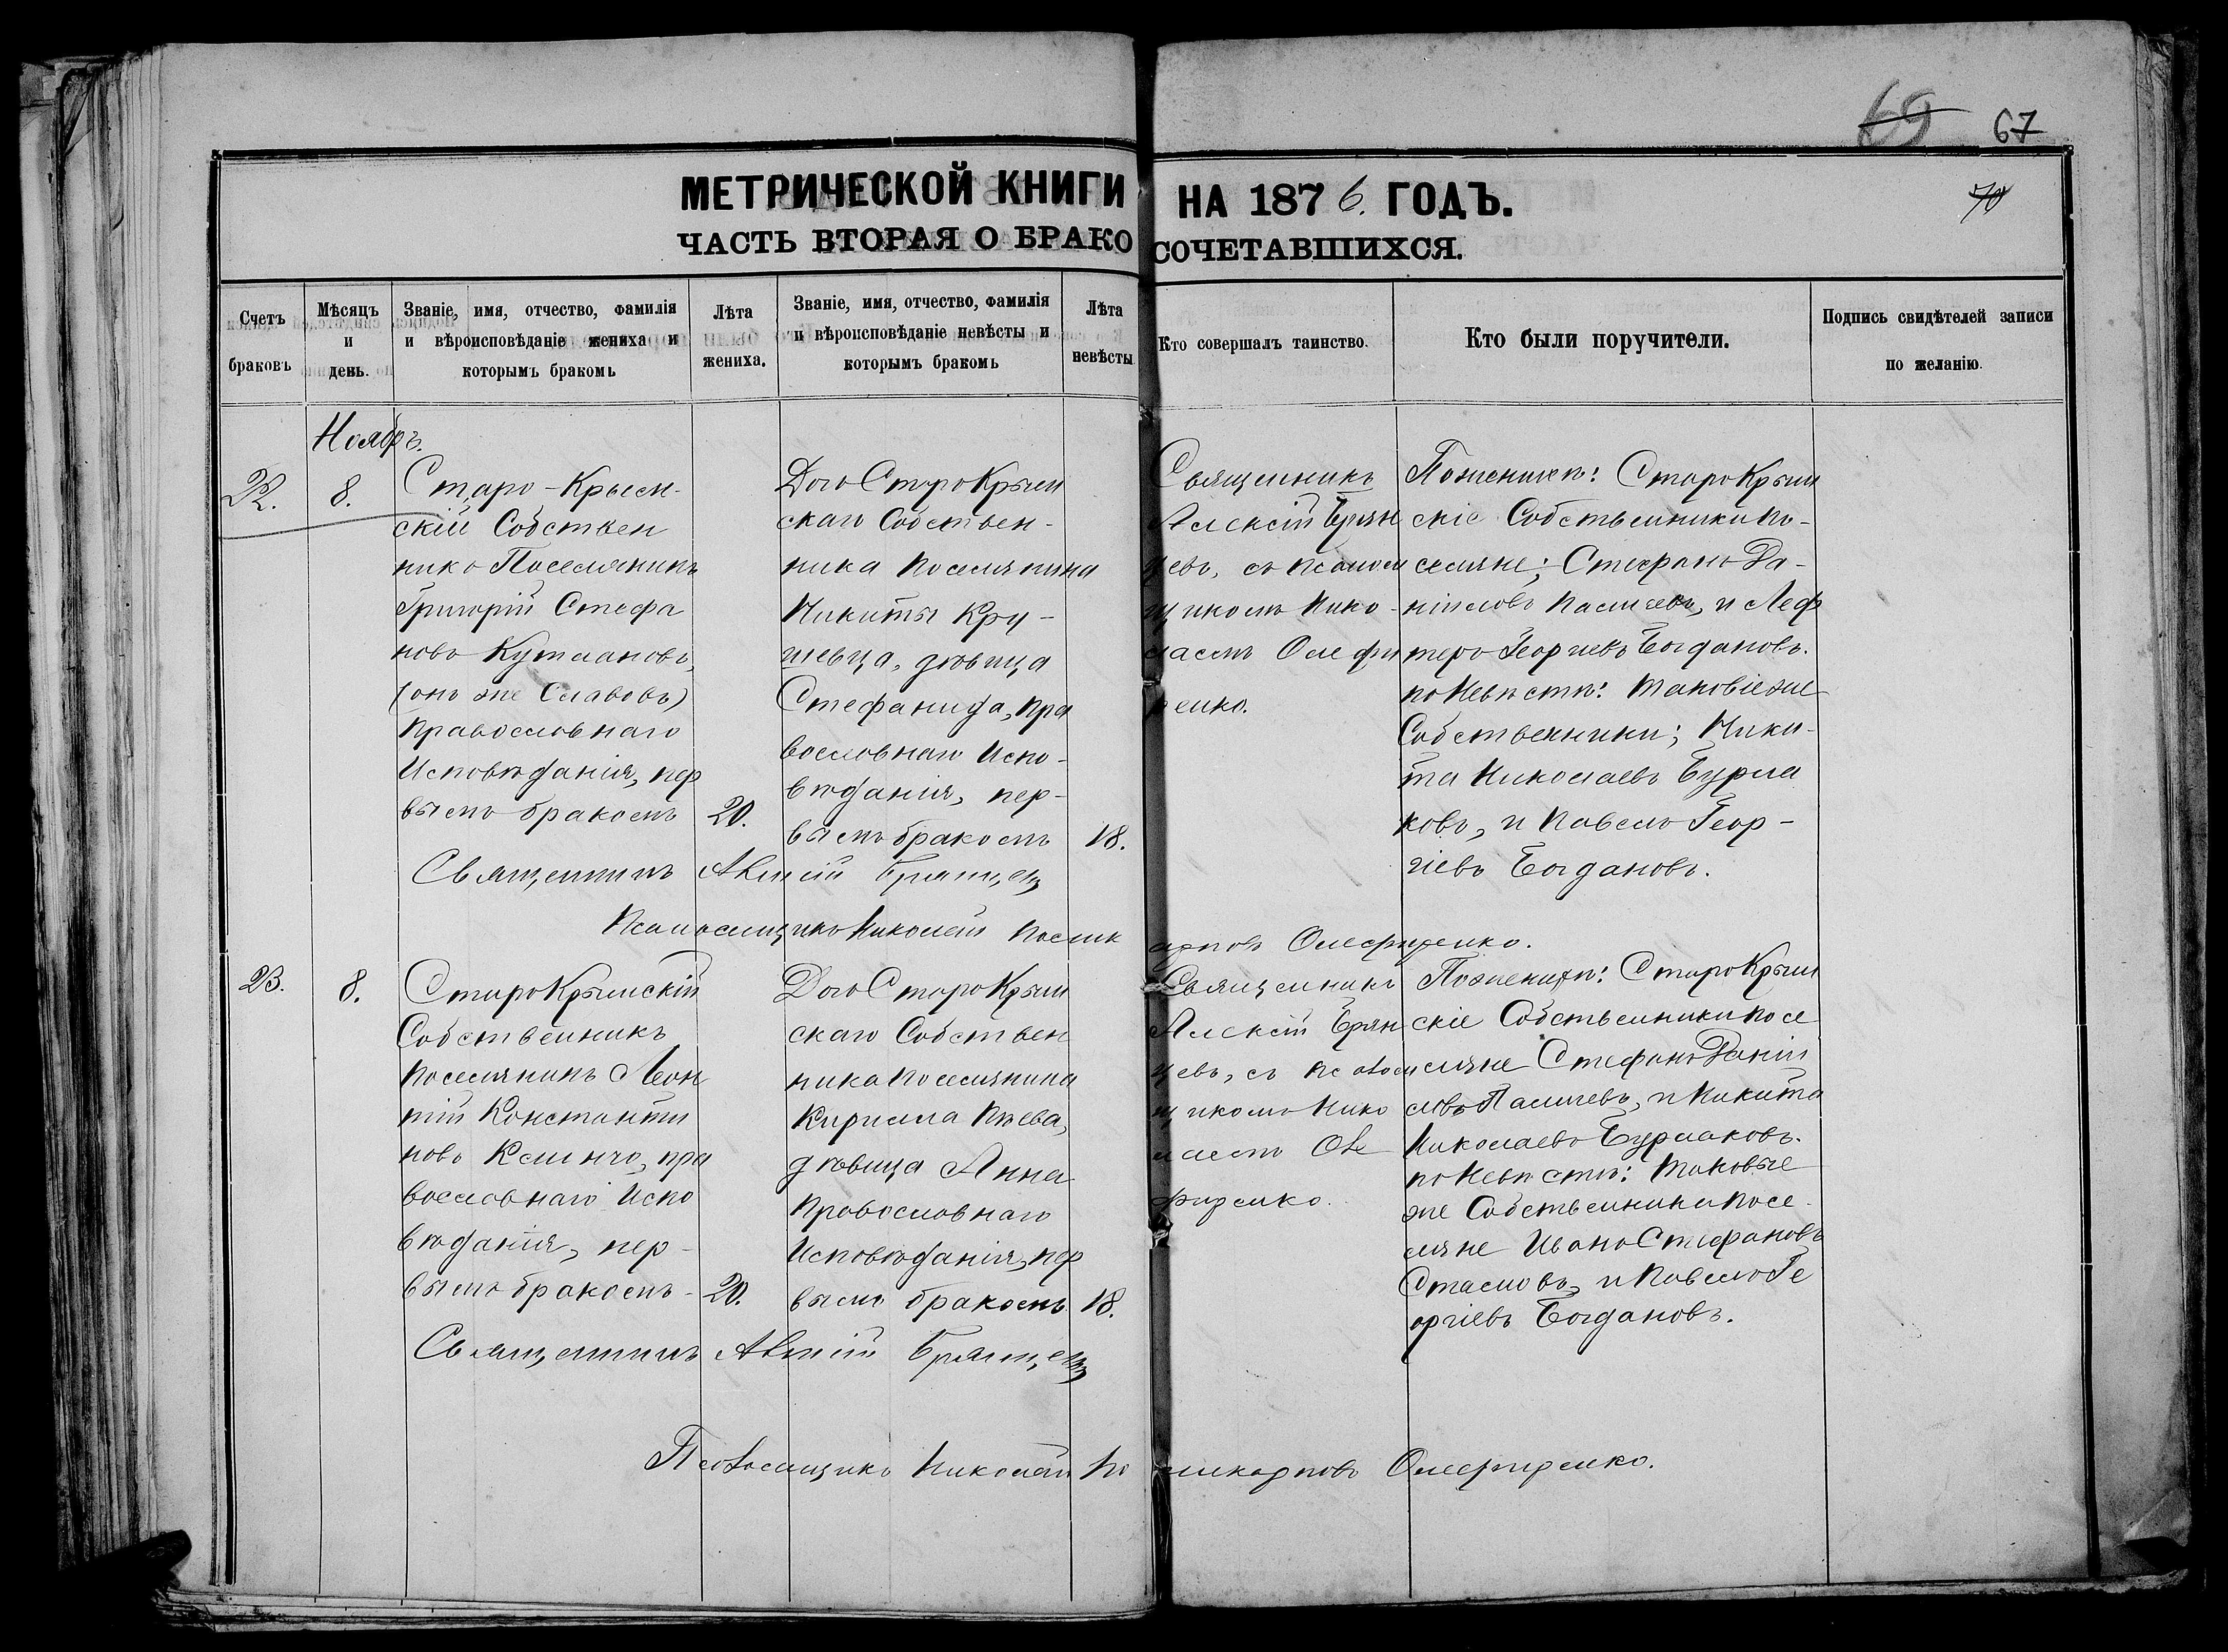 69 67
МЕТРИЧЕСКОЙ КНИГИ НА 1876. ГОДЪ.
70
ЧАСТЬ ВТОРАЯ О БРАКОСОЧЕТАВШИХСЯ.
Счетъ браковъ
Мѣсяцъ и день.
Званіе, имя, отчество, фамилія
и вѣроисповѣданіе жениха и
которымъ бракомъ
Лѣта
жениха.
Званіе, имя, отчество, фамилія
и вѣроисповѣданіе невѣсты и
которымъ бракомъ
Лѣта
невѣсты
Кто совершалъ таинство.
Кто были поручители.
Подпись свидѣтелей записи
по желанію.
Ноябрь.
22.
8.
Старо-Крым-
скій Собствен
никъ Поселянинъ
Григорій Стефа
новъ Кутлановъ,
(онъ же Славовъ)
Православнаго
Исповѣданія, пер
вымъ бракомъ
20.
Дочь СтароКрым
скаго Собствен-
ника Поселянина
Никиты Кру-
шевца, дѣвица
Стефанида, Пра
вославнаго Испо-
вѣданія, пер-
вымъ бракомъ
18.
Священникъ
Алексій Брян
цевъ, съ псалом
щикомъ Нико-
лаемъ Олефи
ренко.
Поженихѣ: СтароКрым
скіе Собственники По-
селяне; Стефанъ Да-
ніиловъ Паличевъ, и Леф
теръ Георгіевъ Богдановъ.
по Невѣстѣ: таковіе же
Собственники; Ники-
та Николаевъ Бурла
ковъ, и Павелъ Геор-
гіевъ Богдановъ.
Священникъ Алексій Брянцевъ
Псаломщикъ Николай Поликарповъ Олефиренко.
23.
8.
СтароКрымскій
Собственникъ
Поселянинъ Леон
тій Константи
новъ Келинчо, пра
вославнаго Испо
вѣданія, пер-
вымъ бракомъ-
20.
Дочь СтароКрым
скаго Собствен
ника Поселянина
Кирилла Пѣева,
дѣвица Анна
Православнаго
Исповѣданія, пер
вымъ бракомъ
18.
Священникъ
Алексій Брян
цевъ, съ псалом
щикомъ Нико
лаемъ Оле
фиренко.
Поженихѣ: СтароКрым
скіе Собственники Посе
ляне Стефанъ Даніи
ловъ Паличевъ, и Никита
Николаевъ Бурлаковъ.
по Невѣстѣ: таковые
же Собственники Посе-
ляне Иванъ Стефановъ
Стамовъ, и Павелъ Ге
оргіевъ Богдановъ.
Священникъ Алексій Брянцевъ
Псаломщикъ Николай Поликарповъ Олефиренко.